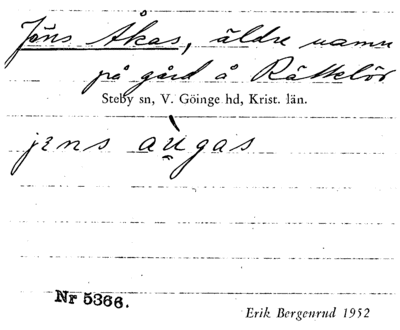 Jöns Åkas, äldre namn
på gård å Rättelöv
Steby sn, V. Göinge hd, Krist. län.
jens aùgas
Nr 5366.
Erik Bergenrud 1952